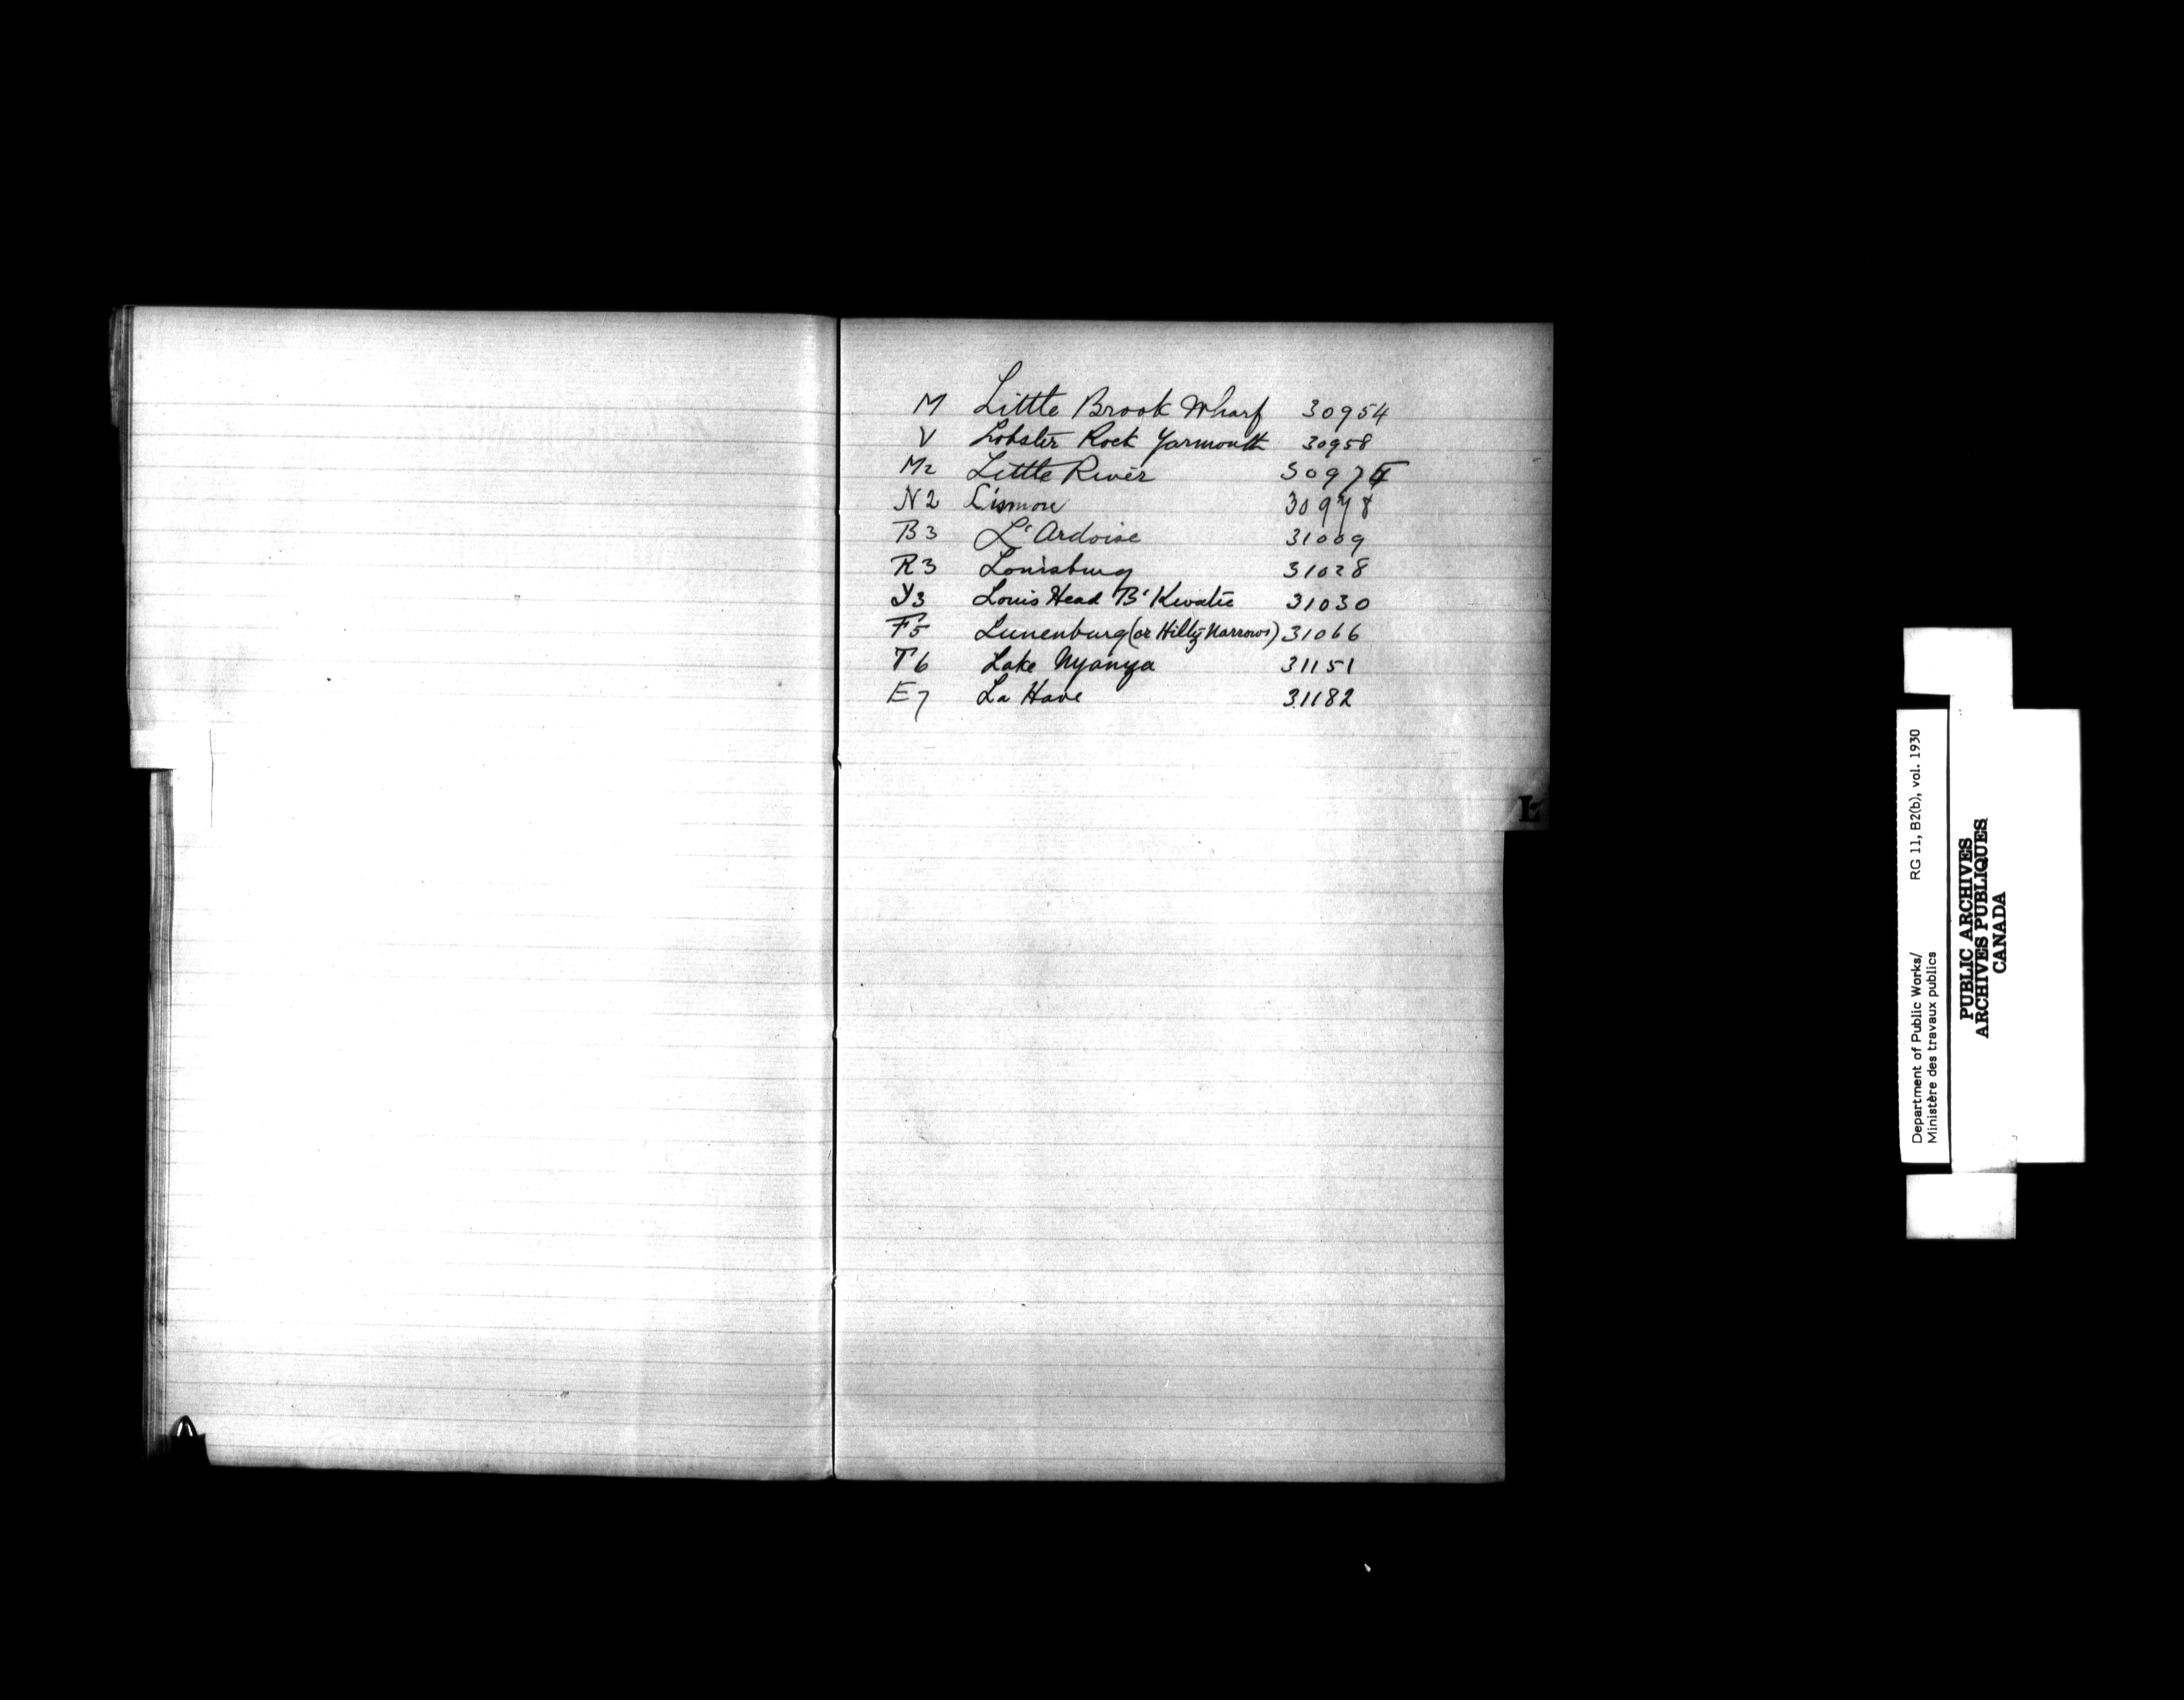 M Little Brook Wharf 30954
V Lobster Rock Yarmouth 30958
M2 Little River 3097
N2 Lismore 30978
B3 L'Ardoise 31009
R3 Louisburg 31028
Y3 Louis Head B' 31030
F5 Lunenburg (or Hilty Narrows) 31066
T6 Lake Nyanza 31151
E7 La Have 31182
L
Department of Public Works/ RG 11, B2(b), vol. 1930
Ministère des travaux publics
PUBLIC ARCHIVES
ARCHIVES PUBLIQUES
CANADA